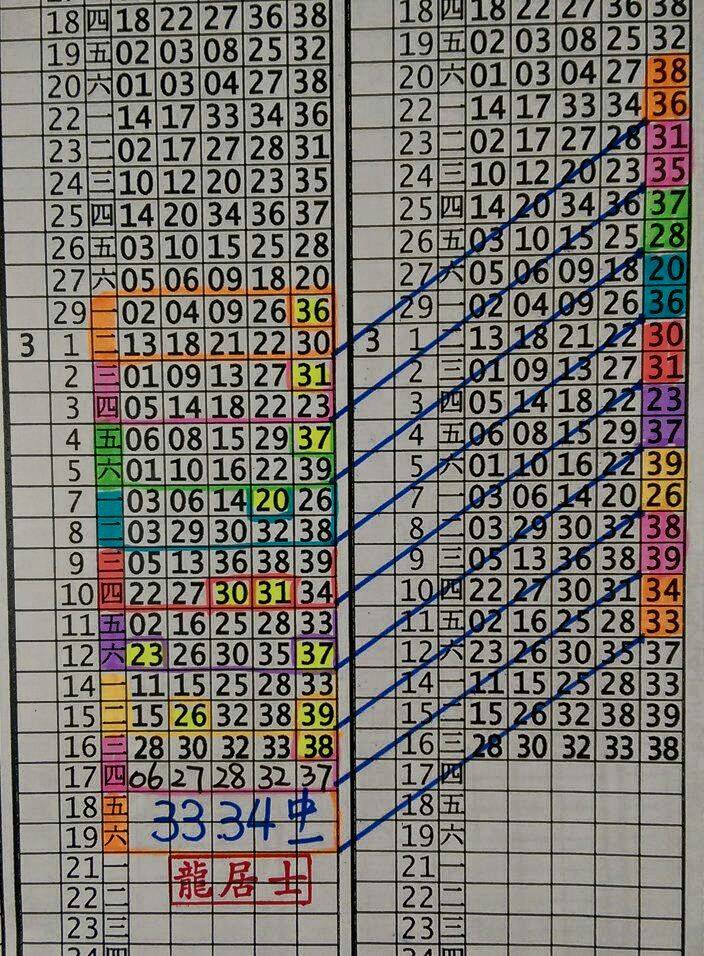 18 四 18 22 27 36 38
19 五 02 03 08 25 32
20 六 01 03 04 27 38
22 一 14 17 33 34 36
23 二 02 17 27 28 31
24 三 10 12 20 23 35
25 四 14 20 34 36 37
26 五 03 10 15 25 28
27 六 05 06 09 18 20
29 一 02 04 09 26 36
3 1 二 13 18 21 22 30
2 三 01 09 13 27 31
3 四 05 14 18 22 23
4 五 06 08 15 29 37
5 六 01 10 16 22 39
7 一 03 06 14 20 26
8 二 03 29 30 32 38
9 三 05 13 36 38 39
10 四 22 27 30 31 34
11 五 02 16 25 28 33
12 六 23 26 30 35 37
14 一 11 15 25 28 33
15 二 15 26 32 38 39
16 三 28 30 32 33 38
17 四 06 27 28 32 37
18 五
19 六
33.34中一
21 一
龍居士
22 二
23 三
24 四
18 四 18 22 27 36 38
19 五 02 03 08 25 32
20 六 01 03 04 27 38
22 一 14 17 33 34 36
23 二 02 17 27 28 31
24 三 10 12 20 23 35
25 四 14 20 34 36 37
26 五 03 10 15 25 28
27 六 05 06 09 18 20
29 一 02 04 09 26 36
3 1 二 13 18 21 22 30
2 三 01 09 13 27 31
3 四 05 14 18 22 23
4 五 06 08 15 29 37
5 六 01 10 16 22 39
7 一 03 06 14 20 26
8 二 03 29 30 32 38
9 三 05 13 36 38 39
10 四 22 27 30 31 34
11 五 02 16 25 28 33
12 六 23 26 30 35 37
14 一 11 15 25 28 33
15 二 15 26 32 38 39
16 三 28 30 32 33 38
17 四
18 五
19 六
21 一
22 二
23 三
24 四